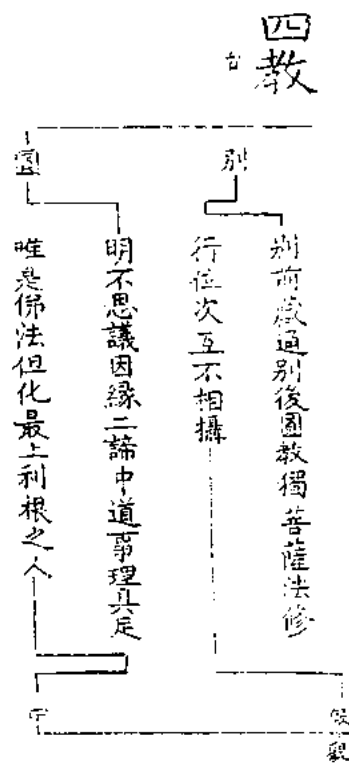 四教
台
別
別前藏通別後圓教獨菩薩法修
行位次互不相攝
假觀
圓
明不思議因緣二諦中道事理具足
唯是佛法但化最上利根之人
中